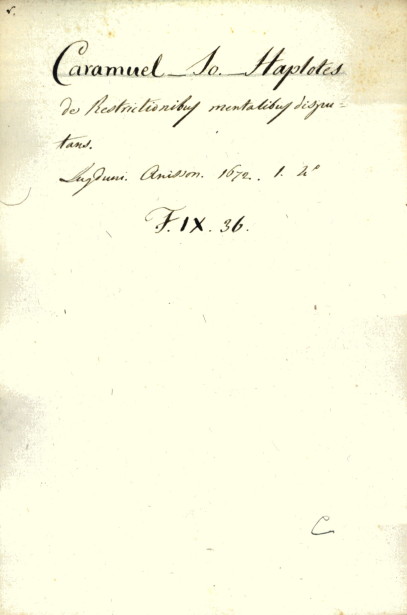 Caramuel _ Jo. _ Haplotes
de Restrictionibus mentalibus dispu-
tans.
Lugduni. Anisson. 1672. . 1. 4°
F. IX. 36.
C